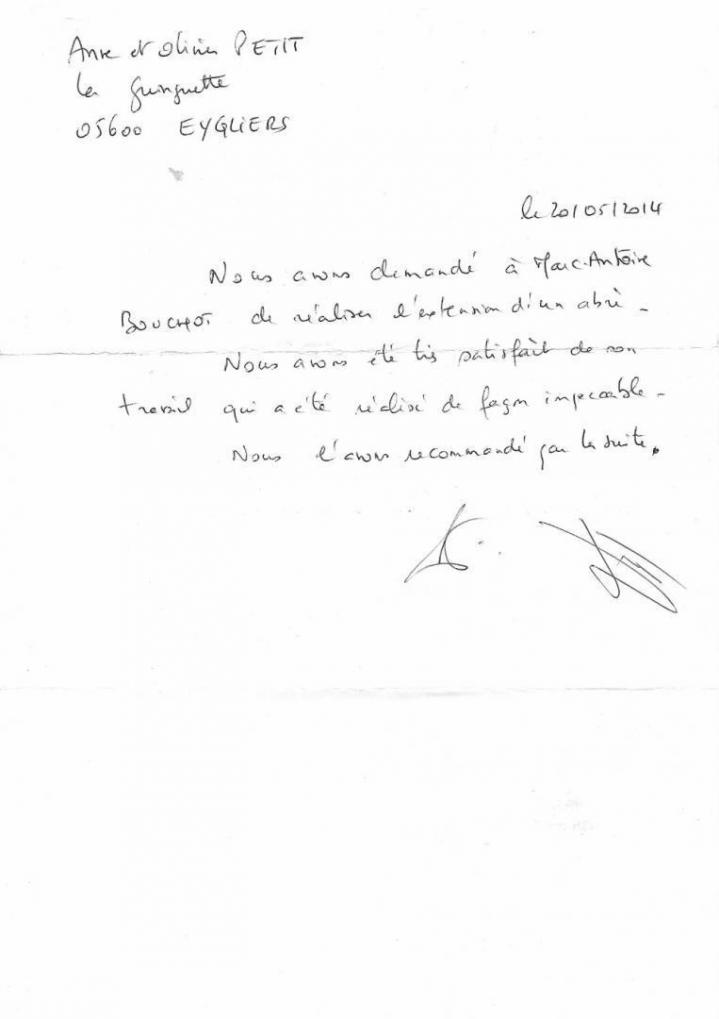 Anne et Olivier PETIT
la guinguette
05600 EYGLIERS
le 20/05/2014
Nous avons demandé à Marc-Antoine
BOUCHOT de réaliser l'extension d'un abri -
Nous avons été très satisfait de son
travail qui a été réalisé de façon impeccable -
Nous l'avons recommandé par la suite.